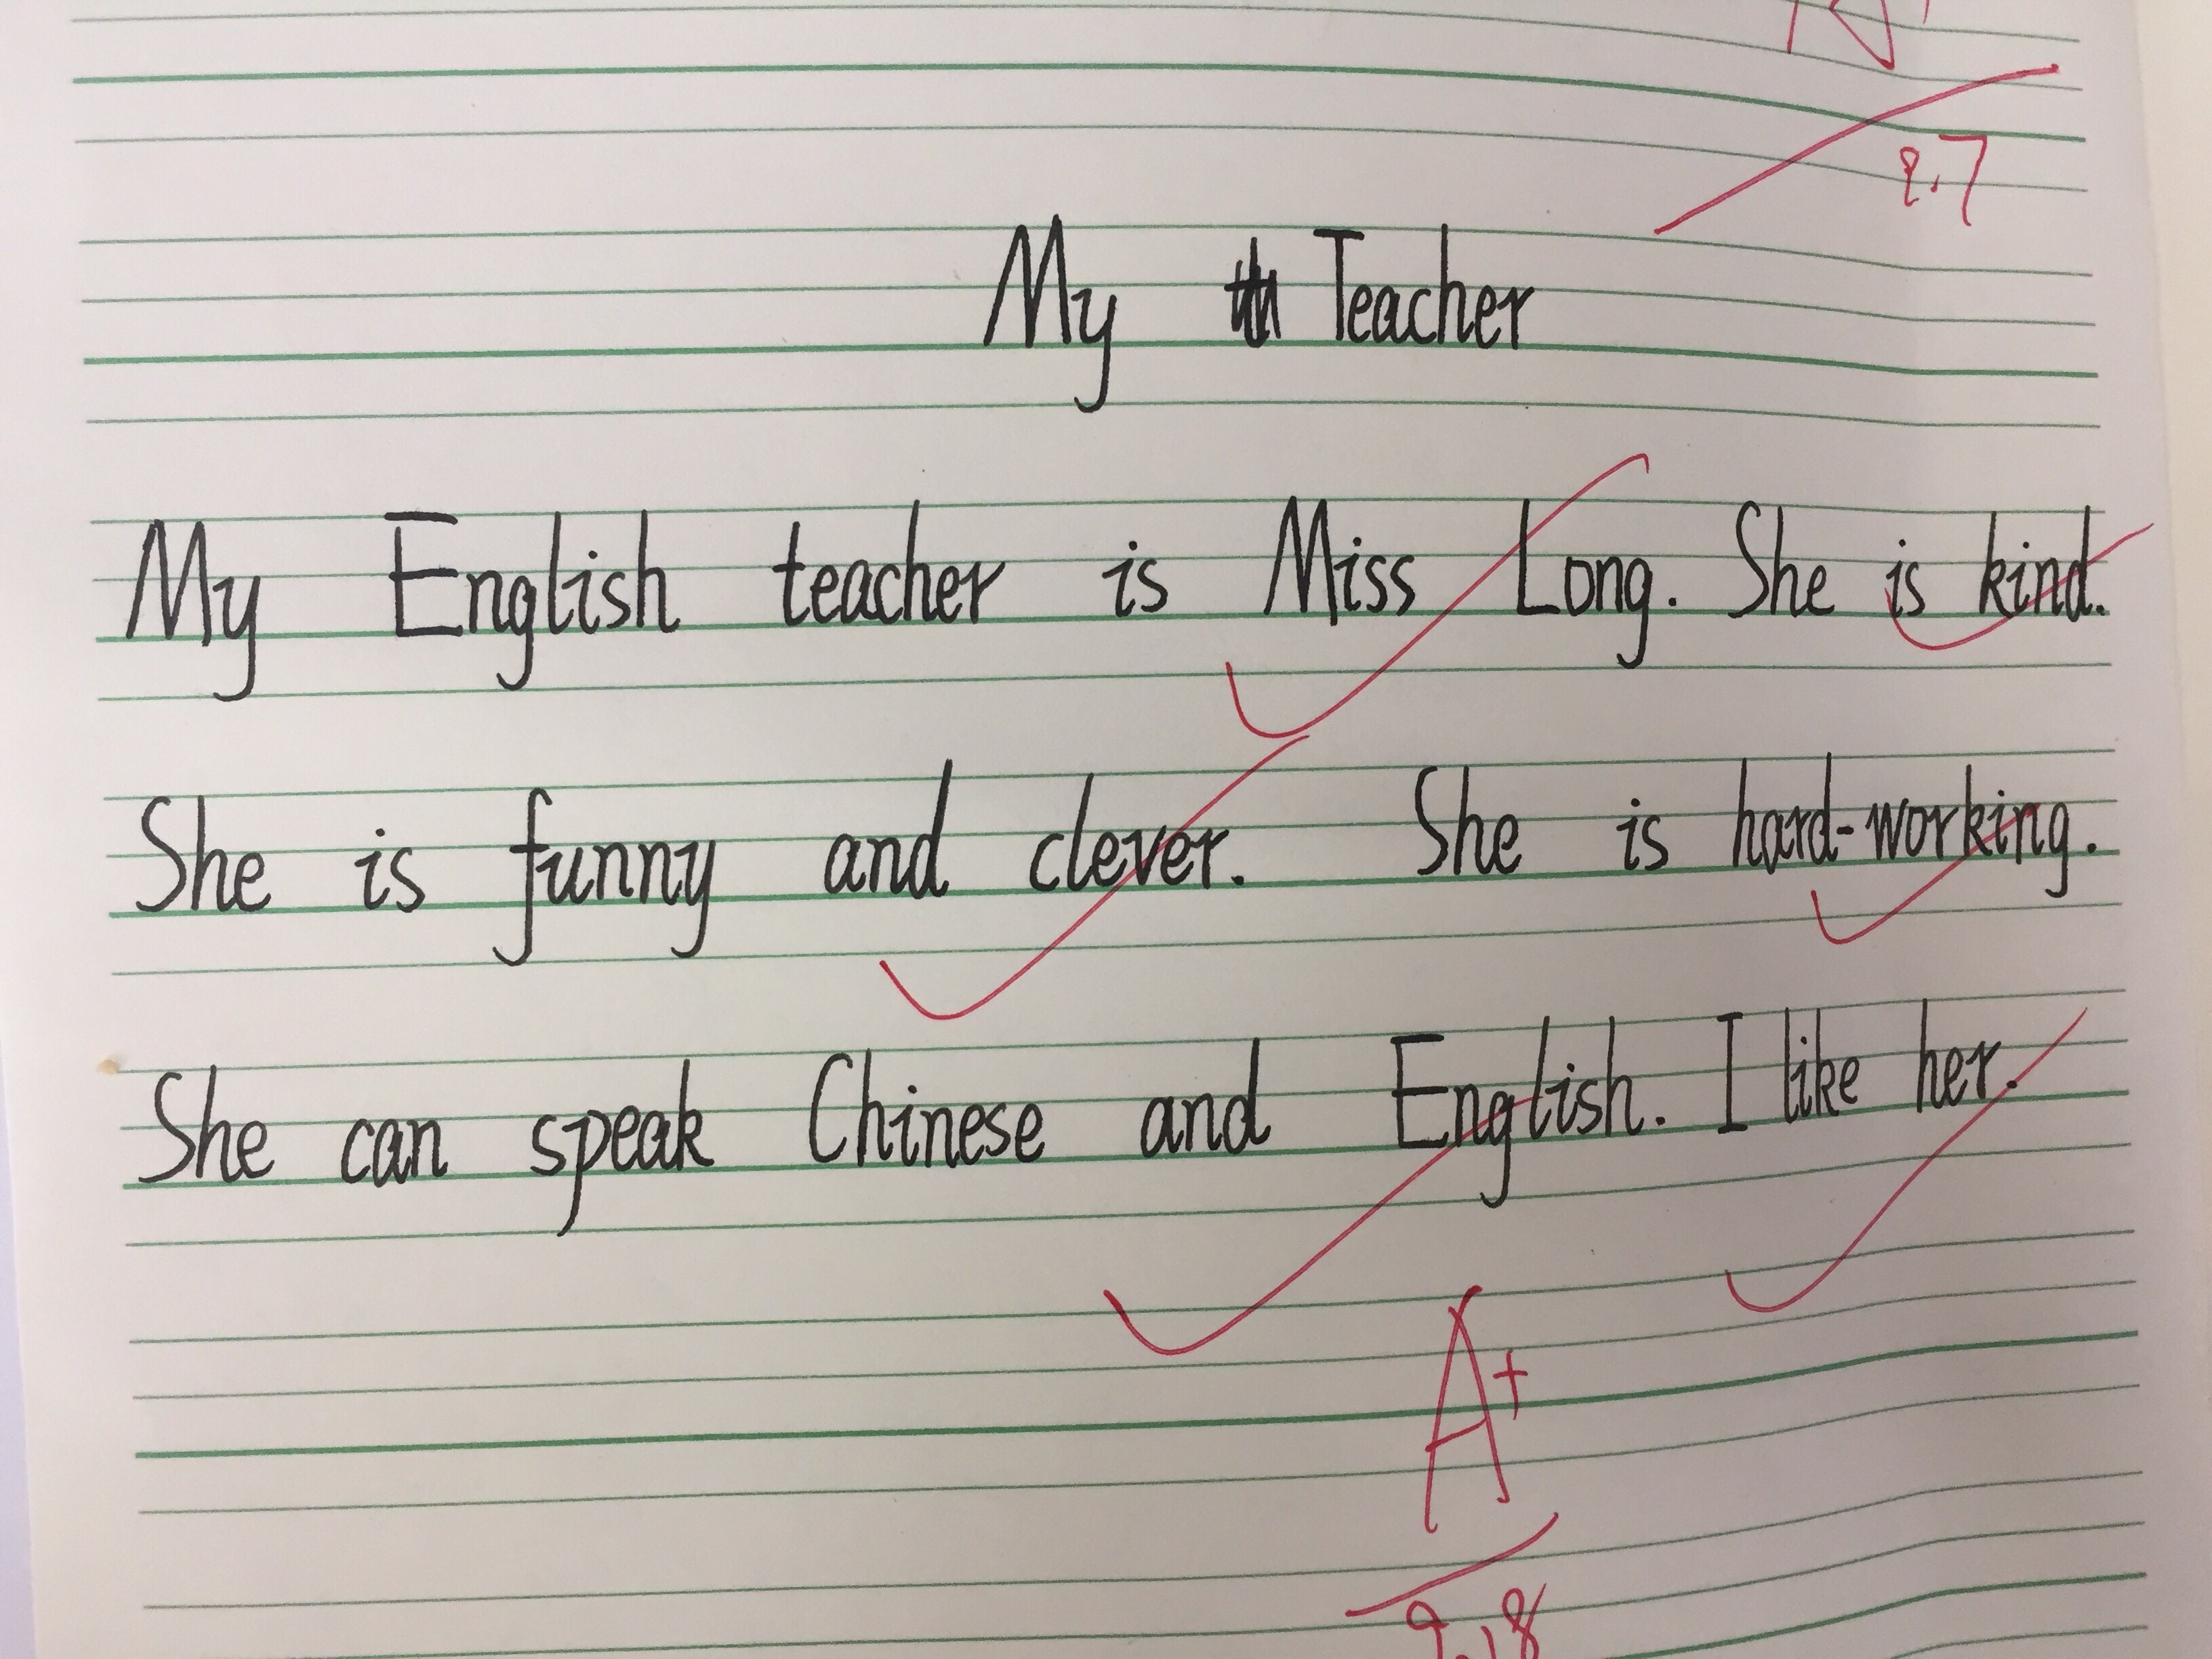 9.7
My Teacher
My English teacher is Miss Long. She is kind.
She is funny and clever. She is hard-working.
She can speak Chinese and English. I like her.
A+
9.18